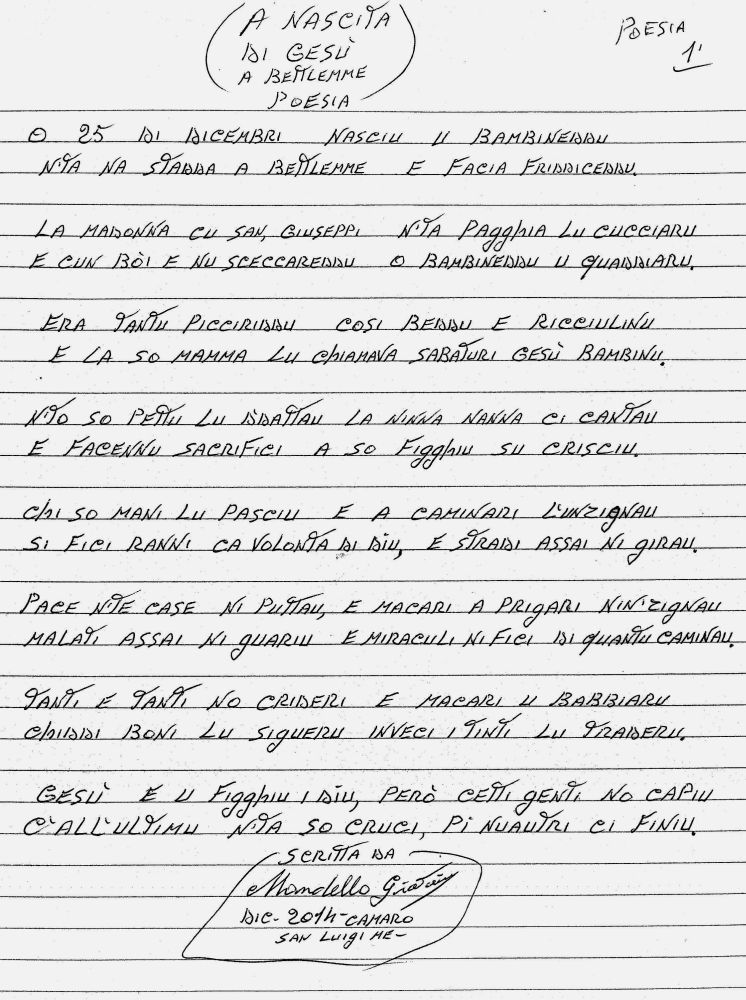 A NASCITA
DI GESÙ
A BETTLEMME
POESIA
POESIA
1'
O 25 DI DICEMBRI NASCIU U BAMBINEDDU
N'TA NA STADDA A BETTLEMME E FACIA FRIDDICEDDU.
LA MADONNA CU SAN, GIUSEPPI N'TA PAGGHIA LU CUCCIARU
E CUN BÒI E NU SCECCAREDDU O BAMBINEDDU U QUADDIARU.
ERA TANTU PICCIRIDDU COSI BEDDU E RICCIULINU
E LA SO MAMMA LU CHIAMAVA SABATURI GESÙ BAMBINU.
N'TO SO PETTU LU DDATTAU LA NINNA NANNA CI CANTAU
E FACENNU SACRIFICI A SO FIGGHIU SU CRISCIU.
CHI SO MANI LU PASCIU E A CAMINARI L'UNZIGNAU
SI FICI RANNI CA VOLONTA DI DÌU, E STRADI ASSAI NI GIRAU.
PACE N'TE CASE NI PUTTAU, E MACARI A PRIGARI NIN'ZIGNAU
MALATI ASSAI NI GUARIU E MIRACULI NI FICI DI QUANTU CAMINAU.
TANTI E TANTI NO CRIDERI E MACARI U BABBIARU
CHIDDI BONI LU SIGUERU INVECI I TINTI LU TRADERU.
GESÙ E U FIGGHIU I DÌU, PERÒ CETTI GENTI NO CAPIU
C'ALL'ULTIMU N'TA SO CRUCI, PI NUAUTRI CI FINIU.
SCRITTA DA
Mandello
DIC- 2014-CAMARO
SAN LUIGI ME-